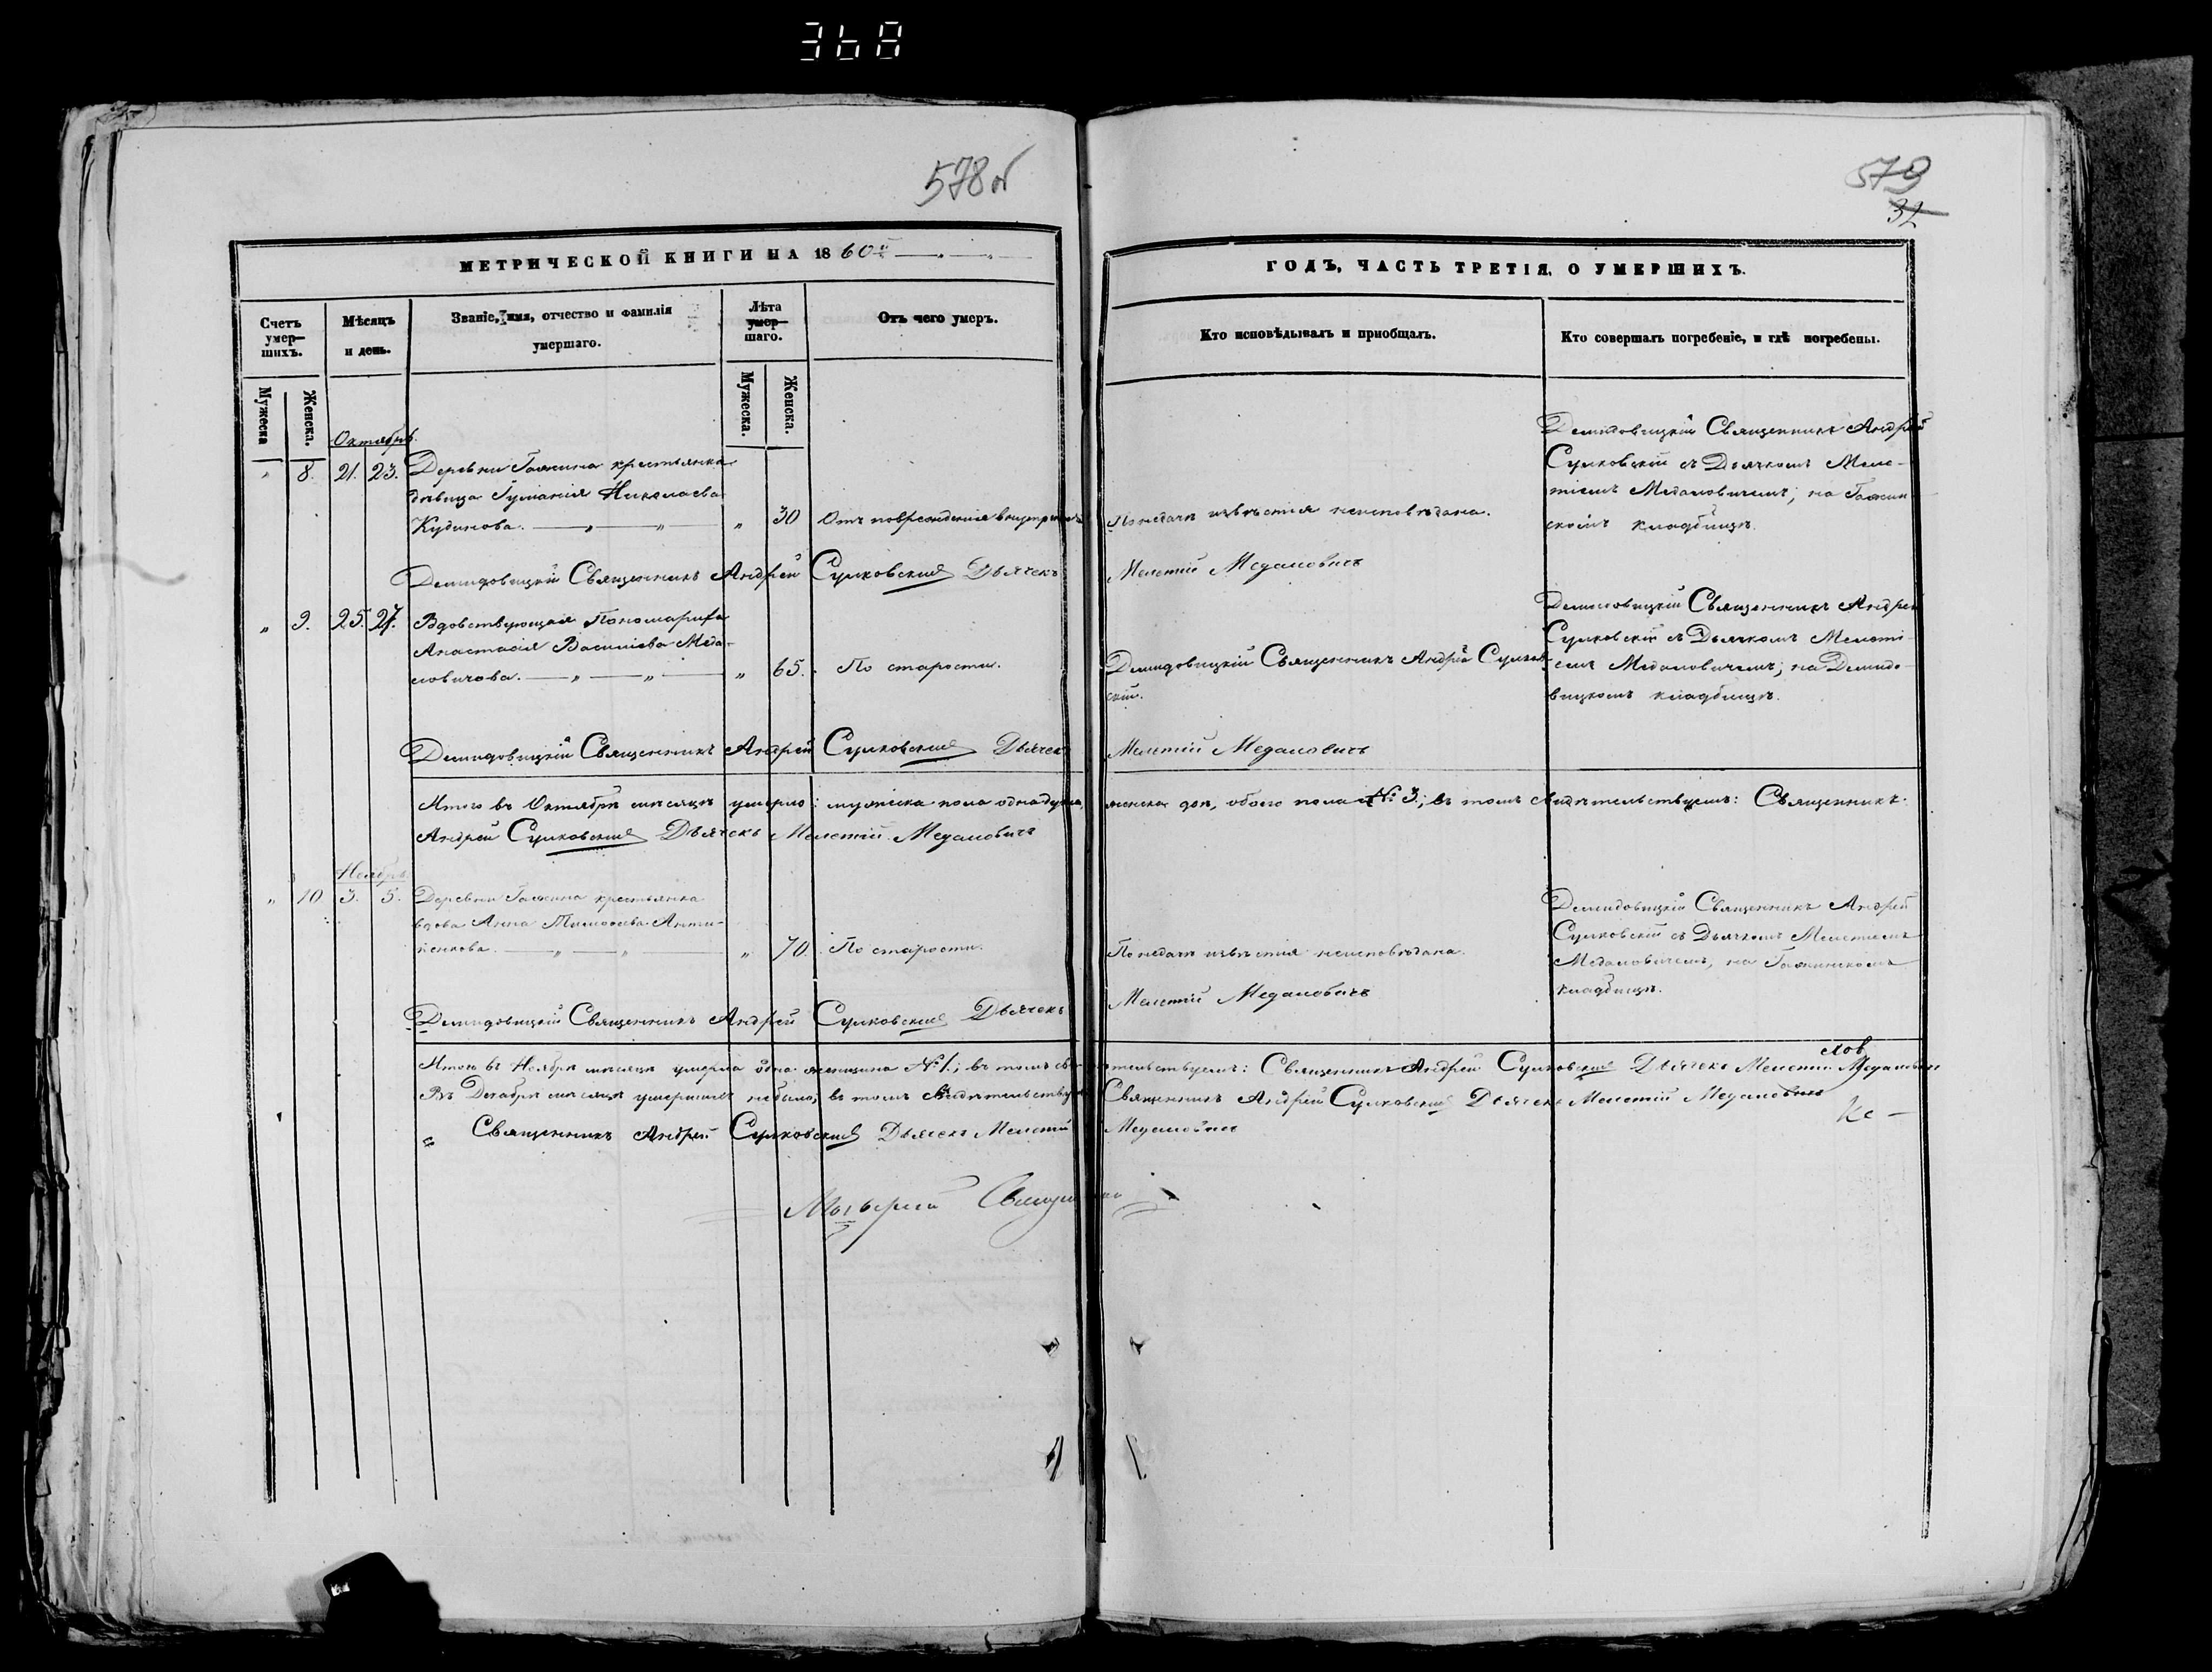 368
578 об
579
32
МЕТРИЧЕСКОЙ КНИГИ НА 1860й
ГОДЪ, ЧАСТЬ ТРЕТІЯ, О УМЕРШИХЪ.
Счетъ умер-шихъ.
Мѣсяцъ и день.
Званіе, имя, отчество и фамилія умершаго.
Лѣта умер-шаго.
Отъ чего умеръ.
Кто исповѣдывалъ и пріобщалъ.
Кто совершалъ погребеніе, и гдѣ погребены.
Мужеска
Женска.
Мужеска.
Женска.
Октябрь.
„ 8. 21. 23. Деревни Гажина крестьянка
дѣвица Николаева
Кудинова. — „ — „ — „ 30 Отъ поврежденія внутренн
По недачѣ извѣстія неисповѣдана.
Демидовицкій Священникъ Андрей
Сулковскій съ Дьячкомъ Меле-
тіемъ Медаловичемъ; на Гажин
скомъ кладбищѣ.
Демидовицкій Священникъ Андрей Сулковскій Дьячекъ Мелетій Медаловичъ
„ 9. 25. 27. Вдовствующая Пономариха
Анастасія Василіева Меда-
ловичова. — „ — „ — „ 65. По старости.
Демидовицкій Священникъ Андрей Сулков
скій.
Демидовицкій Священникъ Андрей
Сулковскій съ Дьячкомъ Мелеті-
емъ Медаловичемъ; на Демидо-
вицкомъ кладбищѣ.
Демидовицкій Священникъ Андрей Сулковскій Дьячекъ Мелетій Медаловичъ
Итого въ Октябрѣ мѣсяцѣ умерло: мужеска пола одна душа, женска двѣ, обоего пола № 3; въ томъ свидѣтельствуемъ: Священникъ
Андрей Сулковскій Дьячекъ Мелетій Медаловичъ
Ноябрь
„ 10 3. 5. Деревни Гажина крестьянка
вдова Анна Тимофеева
— „ — „ — „ 70. По старости.
По недачѣ извѣстія неисповѣдана.
Демидовицкій Священникъ Андрей
Сулковскій съ Дьячкомъ Мелетіемъ
Медаловичемъ, на Гажинскомъ
кладбищѣ.
Демидовицкій Священникъ Андрей Сулковскій Дьячекъ Мелетій Медаловичъ
Итого въ Ноябрѣ мѣсяцѣ умерла одна женщина № 1; въ томъ свидѣтельствуемъ: Священникъ Андрей Сулковскій Дьячекъ Мелетій Медаловичъ
Въ Декабрѣ мѣсяцѣ умершихъ небыло, въ томъ свидѣтельствуемъ Священникъ Андрей Сулковскій Дьячекъ Мелетій Медаловичъ
Священникъ Андрей Сулковскій Дьячекъ Мелетій Медаловичъ